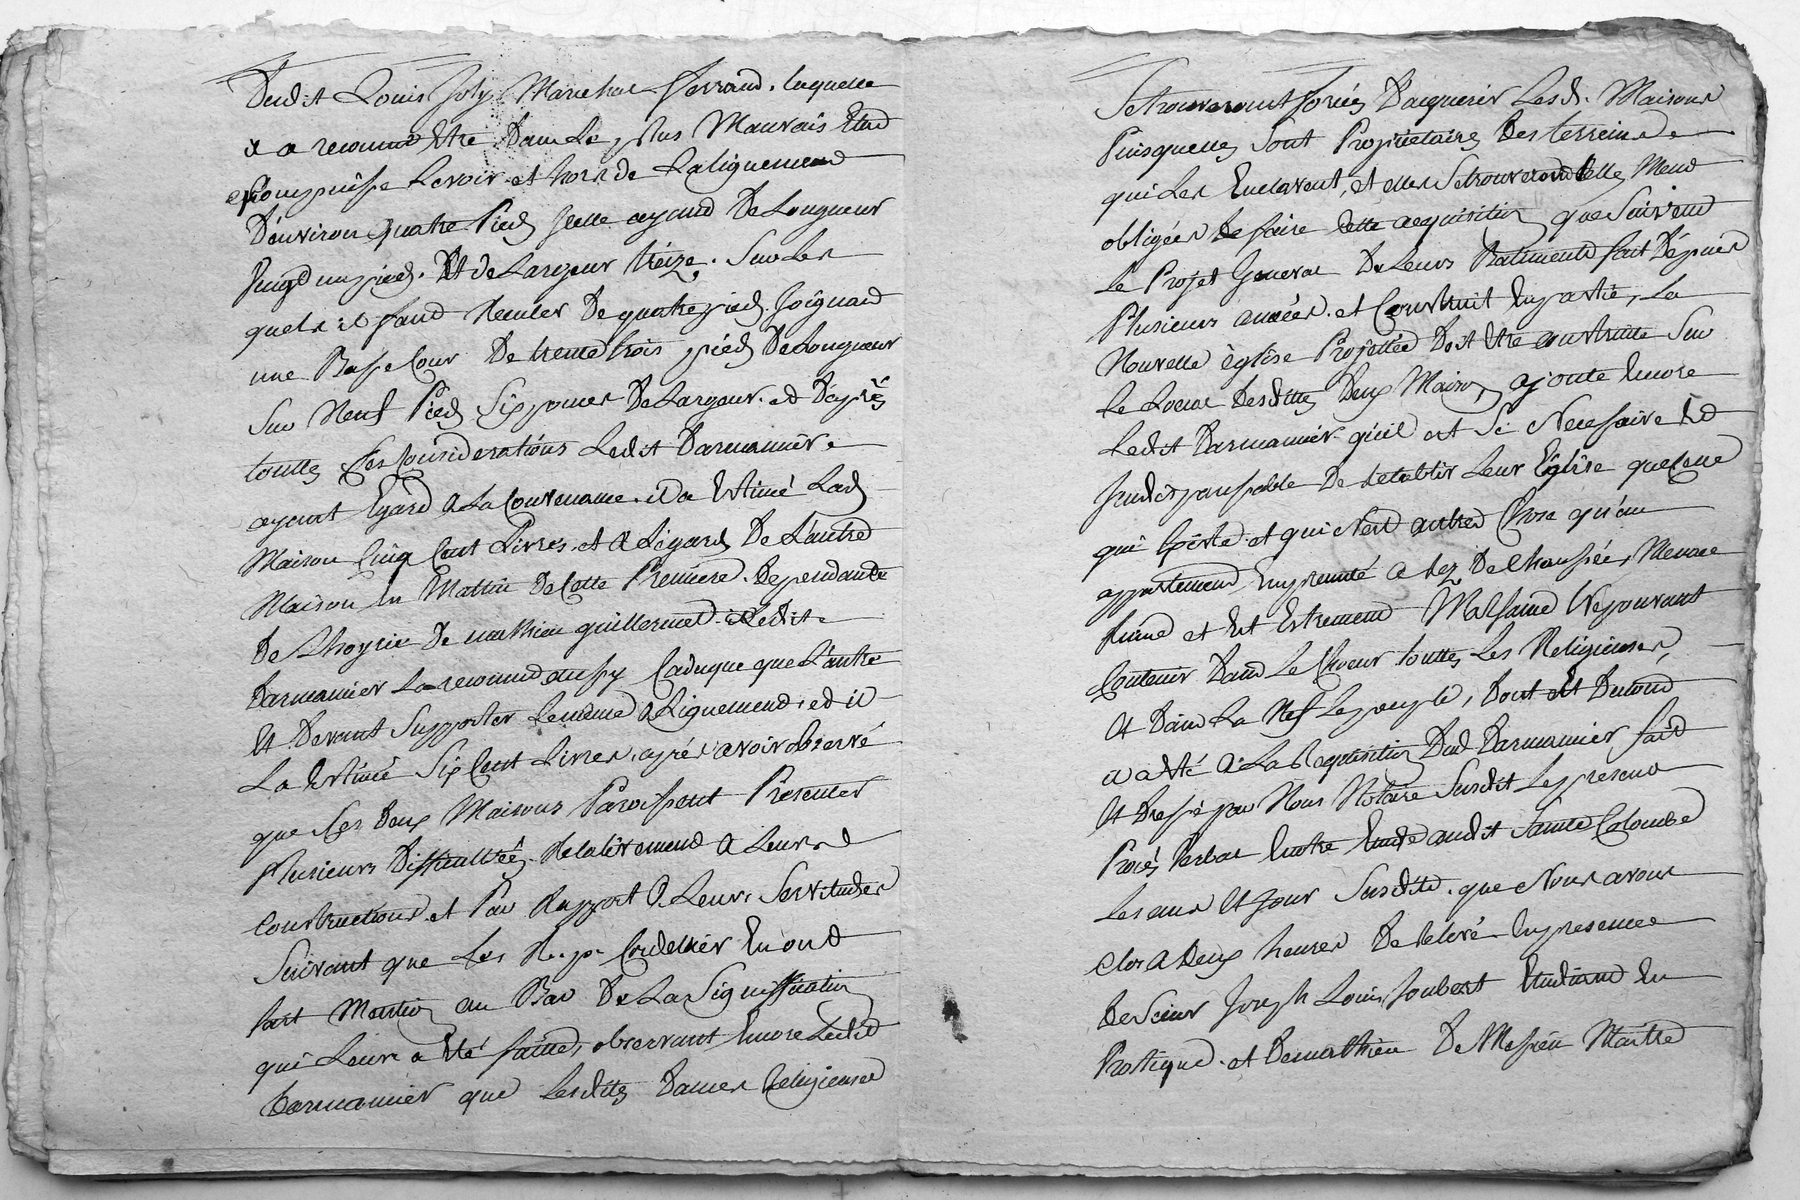 Dudit Louis Joly Marechal ferrand. laquelle
il a reconnu Etre Dans Le plus Mauvais Etat
Levoir et hors de Lalignement
D'environ quatre Pied Jcelle ayand De Longueur
Vingt un pied. Et de Largeur treize. Sur Les
quels il faud Reculer De quatre pied, Joignand
une Basse Cour De trente trois pied De Longueur
Sur Neuf Pied Six pouces De Largeur. et D'après
touttes Ces Considerations Ledit Darmannier
ayant Egard a La Convenance. il a Estimé Lad
Maison Cinq Cent Livres. et a L'egard De L'autre
Maison en Mattin De Cette Premiere. Dependante
De L'hoyrie De mathieu guillermet. Ledit
Darmanier La reconnu aussy Caduque que L'autre
Et Devant Supporter Le meme alignement, et il
La Estimée Six Cent Livres, aprés avoir observé
que Ces Deux Maisons Paroissent Presenter
Plusieurs Difficultées. Relativement a Leurs
Constructions et Par Rapport a Leurs Servitudes
Suivant que Les R. p. Cordellier En ont
fait Mention au Bas De La Signiffication
qui Leur a Eté faitte, observant Encore Ledit
Darmannier que Lesdittes Dames Religieuses
Se trouveront forcées D'acquerir Lesd. Maisons
Puisquelles Sont Proprietaires Des terreins
qui Les Enclavent, et elles Se trouveront telle Ment
obligées De faire Cette acquisition que Suivant
Le Projet General De Leurs Batiments fait Depuis
Plusieurs années. et Construit En partie, La
Nouvelle èglise Projettée Doit Etre Construitte Sur
Le Local Desdittes Deux Maison, ajoute Encore
Ledit Darmannier qu'il est Si Necessaire Et
Jndispensable De Retablir Leur Eglise que Celle
qui Existe. et qui N'est autres Chose qu'un
appartement Emprunté a Rez De Chaussée, Menace
Ruine et Est Extremement Malsaine Ne pouvant
Contenir Dans Le Choeur touttes Les Religieuses,
Et Dans La Nef Le peuple, Dont Et Du tout
il a Eté a La Requisition Dud. Darmannier fait
Et Dressé par Nous Notaire Susdit Le present
Procés Verbal En notre Etude audit Sainte Colombe
Les ans Et Jour Susdits. que Nous avons
Clos a Deux heures De Relevé En presence
de Sieur Joseph Louis Joubert Etudiand En
Pratique. et De mathieu De Messieu Maitre